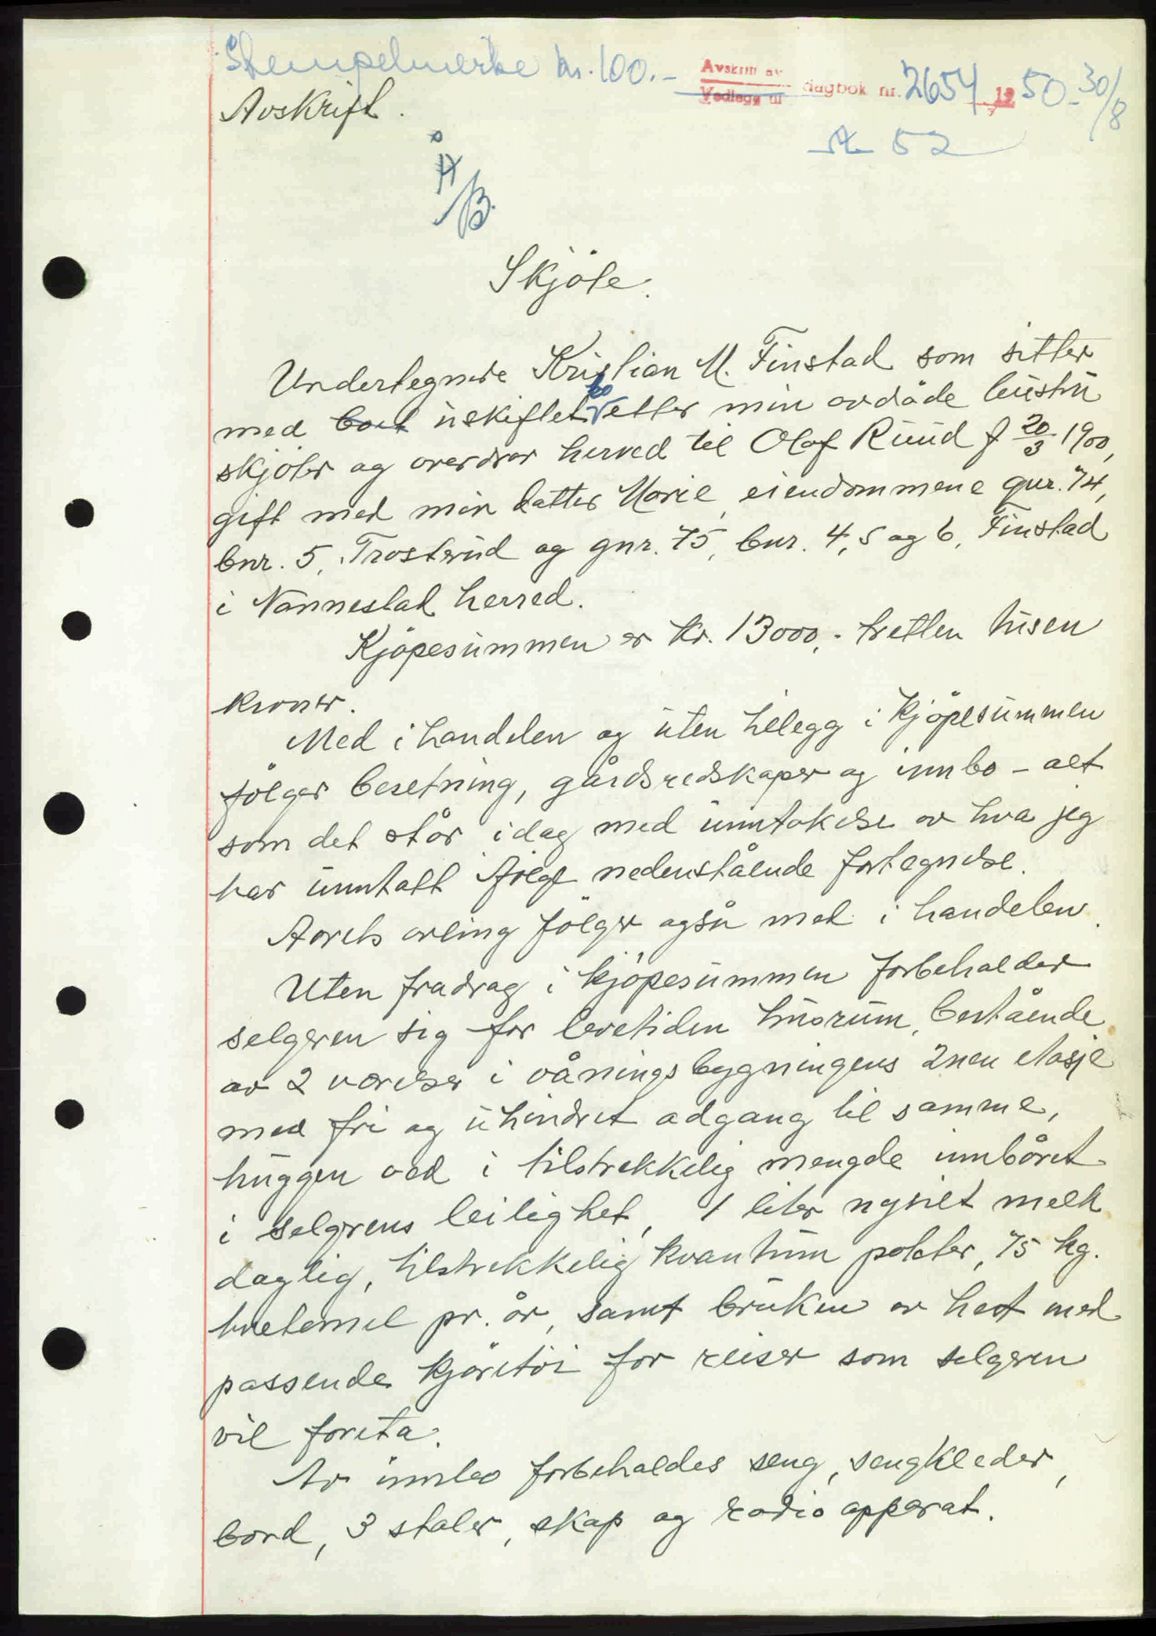 Stempelmerke kr. 100.-
Avskrift av
Vedlegg til dagbok nr. 2654 1950-30/8
Avskrift.
st 52
Å/B.
Skjøte.
Undertegnede Kristian M. Finstad som sitter
med bort uskiftet bo etter min avdøde hustru
skjøter og overdrar herved til Olaf Ruud f 20/3 1900,
gift med min datter Marie, eiendommene gnr. 74,
bnr. 5, Trosterud og gnr. 75, bnr. 4, 5 og 6, Finstad
i Nannestad herred.
Kjøpesummen er kr. 13000,- tretten tusen
kroner.
Med i handelen og uten tillegg i kjøpesummen
følger besetning, gårdsredskaper og innbo - alt
som det står idag med unntakelse av hva jeg
har unntatt ifølge nedenstående fortegnelse.
Årets avling følger også med i handelen.
Uten fradrag i kjøpesummen forbeholder
selgeren sig for levetiden husrum, bestående
av 2 værelser i våningsbygningens 2nen etasje
med fri og uhindret adgang til samme,
huggen ved i tilstrekkelig mengde innbåret
i selgerens leilighet, 1 liter nysilt melk
daglig, tilstrekkelig kvantum poteter, 75 kg.
hvetemel pr. år, samt bruken av hest med
passende kjøretøi for reiser som selgeren
vil foreta.
Av innbo forbeholdes seng, sengklæder,
bord, 3 stoler, skap og radioapparat.